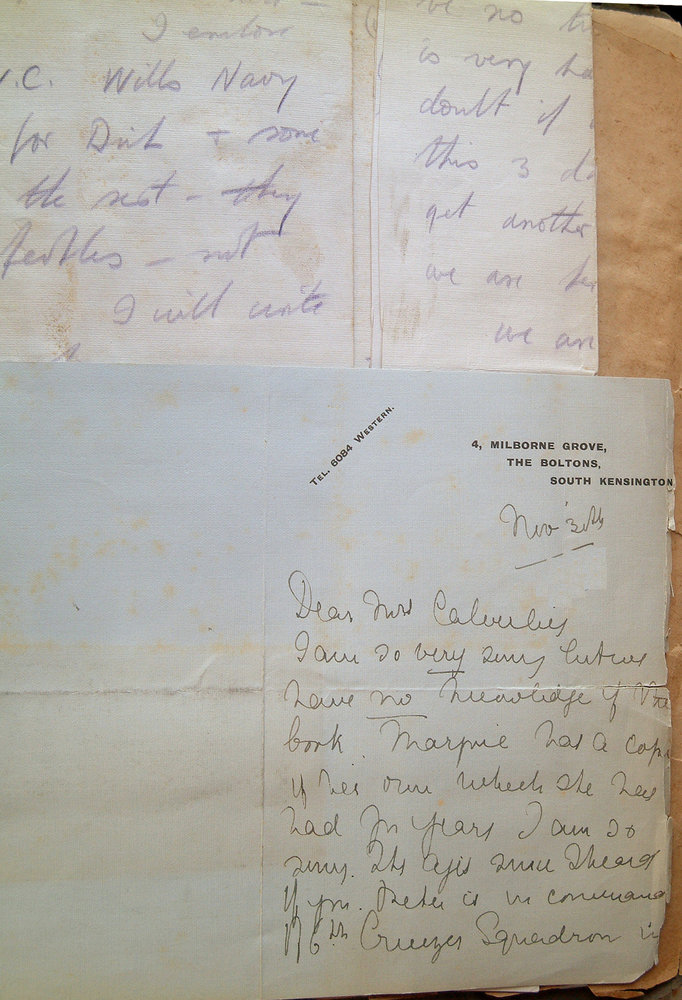 I enclose
V.C. Wills Navy
for Dick + some
the rest - they
- not
I will write
ve no
is very ha
doubt if
this 3 d
get another
we are her
we are
TEL. 6084 WESTERN.
4, MILBORNE GROVE,
THE BOLTONS,
SOUTH KENSINGTON
Nov 30th
Dear Mrs Calverley
I am so very sorry but we
have no knowledge of the
book. Marjorie has a copy
of her own which she has
had for years I am so
sorry. Its ages since I heard
of you. Peter is in command
of 6th Cruizer Squadron in